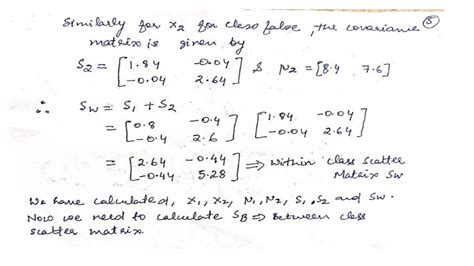 Similarly for X2 for class false, the covariance (5)
matrix is given by
S2 = [1.84 -0.04
-0.04 2.64] & N2 = [8.4 7.6]
∴ Sw = S1 + S2
= [0.8 -0.4
-0.4 2.6] [1.84 -0.04
-0.04 2.64]
= [2.64 -0.44
-0.44 5.28] ⇒ Within class scatter
Matrix Sw
We have calculated, X1, X2, N1, N2, S1, S2 and Sw.
Now we need to calculate SB ⇒ Between class
scatter matrix.